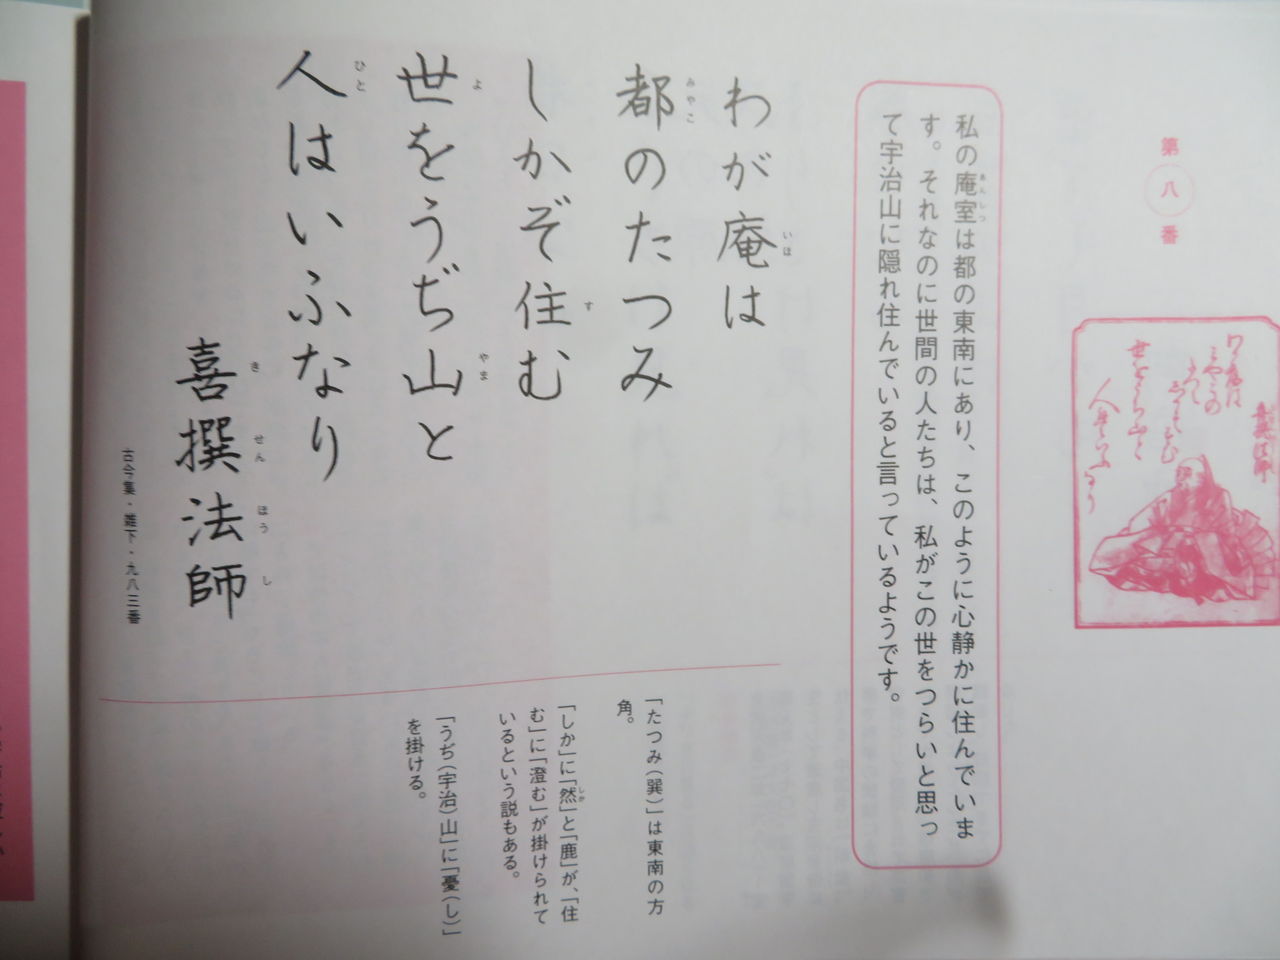 第八番
私の庵室は都の東南にあり、このように心静かに住んでいま
す。それなのに世間の人たちは、私がこの世をつらいと思っ
て宇治山に隠れ住んでいると言っているようです。
わが庵は
都のたつみ
しかぞ住む
世をうぢ山と
人はいふなり
喜撰法師
古今集・雑下・九八三番
「たつみ(巽)」は東南の方
角。
「しか」に「然」と「鹿」が、「住
む」に「澄む」が掛けられて
いるという説もある。
「うぢ(宇治)山」に「憂(し)」
を掛ける。